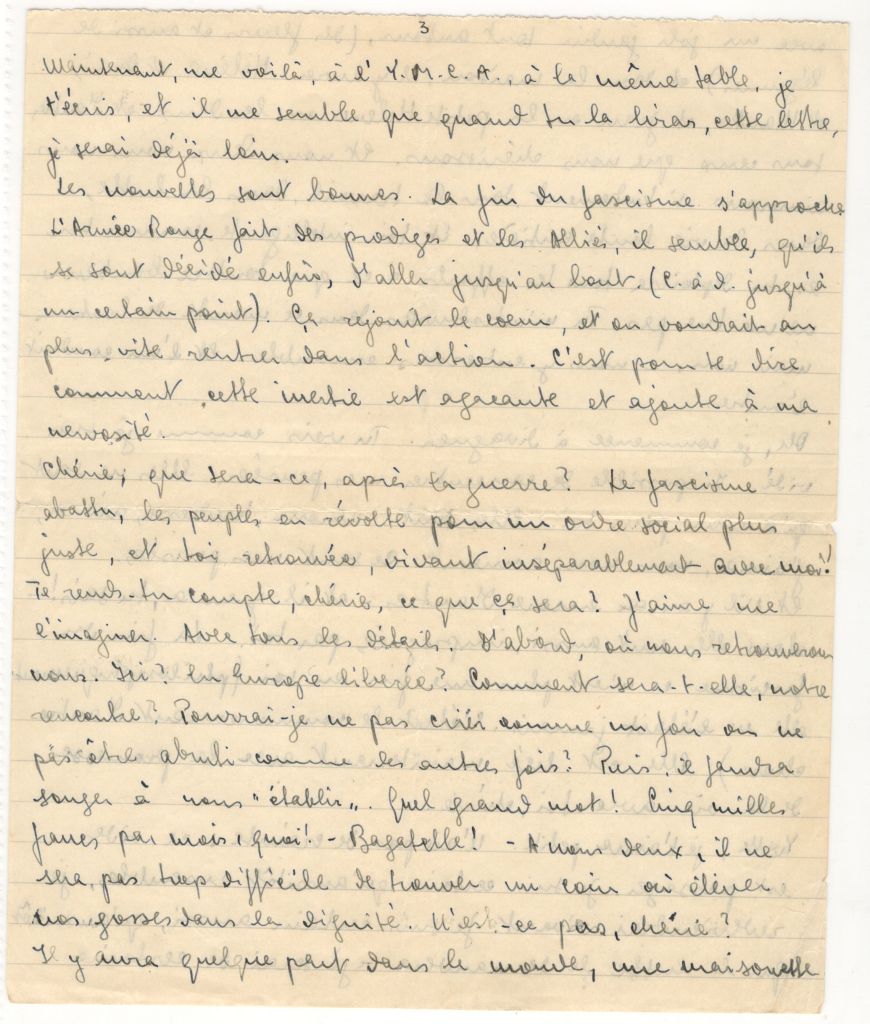 3
Maintenant, me voilà, à l'Y.M.C.A., à la même table, je
t'écris, et il me semble que quand tu la liras, cette lettre,
je serai déjà loin.
Les nouvelles sont bonnes. La fin du fascisme s'approche
L'Armée Rouge fait des prodiges et les Alliés, il semble, qu'ils
se sont décidé enfin, d'aller jusqu'au bout. (C. à d. jusqu'à
un certain point). Ça rejouit le coeur, et on voudrait au
plus vite rentrer dans l'action. C'est pour te dire
comment cette inertie est agacante et ajoute à ma
nervosité.
Chérie, que sera-ce, après la guerre? Le fascisme
abattu, les peuples en révolte pour un ordre social plus
juste, et toi retrouvée, vivant inséparablement avec moi!
Te rends-tu compte, chérie, ce que ça sera? J'aime me
l'imaginer. Avec tous les détails. D'abord, où nous retrouverons
nous. Ici? En Europe liberée? Comment sera-t-elle, notre
rencontre? Pourrai-je ne pas crier comme un fou ou ne
pas être abruti comme des autres fois? Puis, il faudra
songer à nous "établir". Quel grand mot! Cinq milles
francs par mois, quoi! - Bagatelle! - A nous deux, il ne
sera pas trop difficile de trouver un coin où élever
nos gosses dans la dignité. N'est-ce pas, chérie?
Il y aura quelque part dans le monde, une maisonette